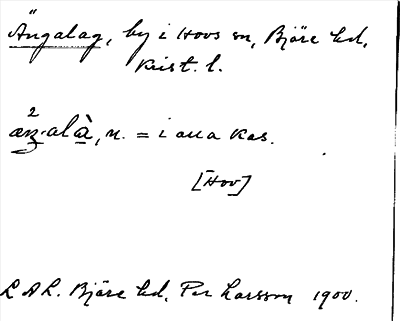 Ängalag, by i Hovs sn, Bjäre hd,
Krist. l.
2
æŋ·alà, n. = i alla kas.
[Hov]
LAL. Bjäre hd. Per Larsson 1900.